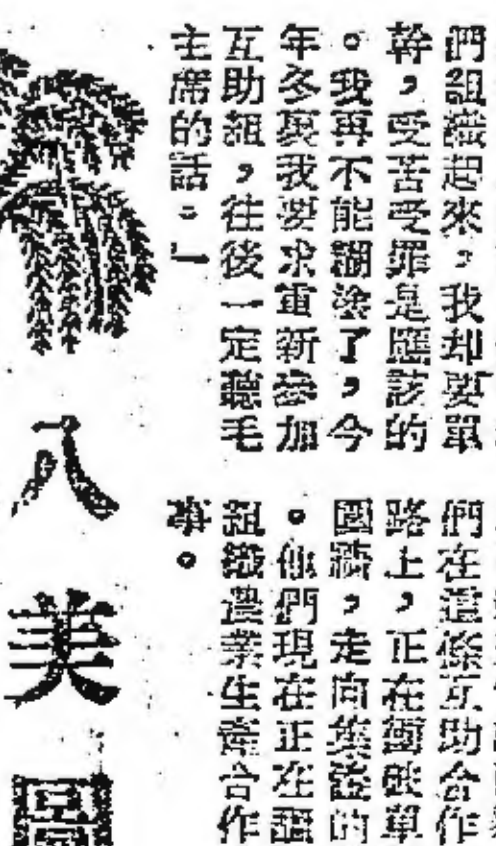 們組織起來，我却要單
幹，受苦受罪是應該的
。我再不能糊塗了，今
年冬裏我要求重新參加
互助組，往後一定聽毛
主席的話。」
們在這條互助合作
路上，正在衝破單
圍牆，走向集體的
。他們現在正在醞
組織農業生產合作
事。
八美